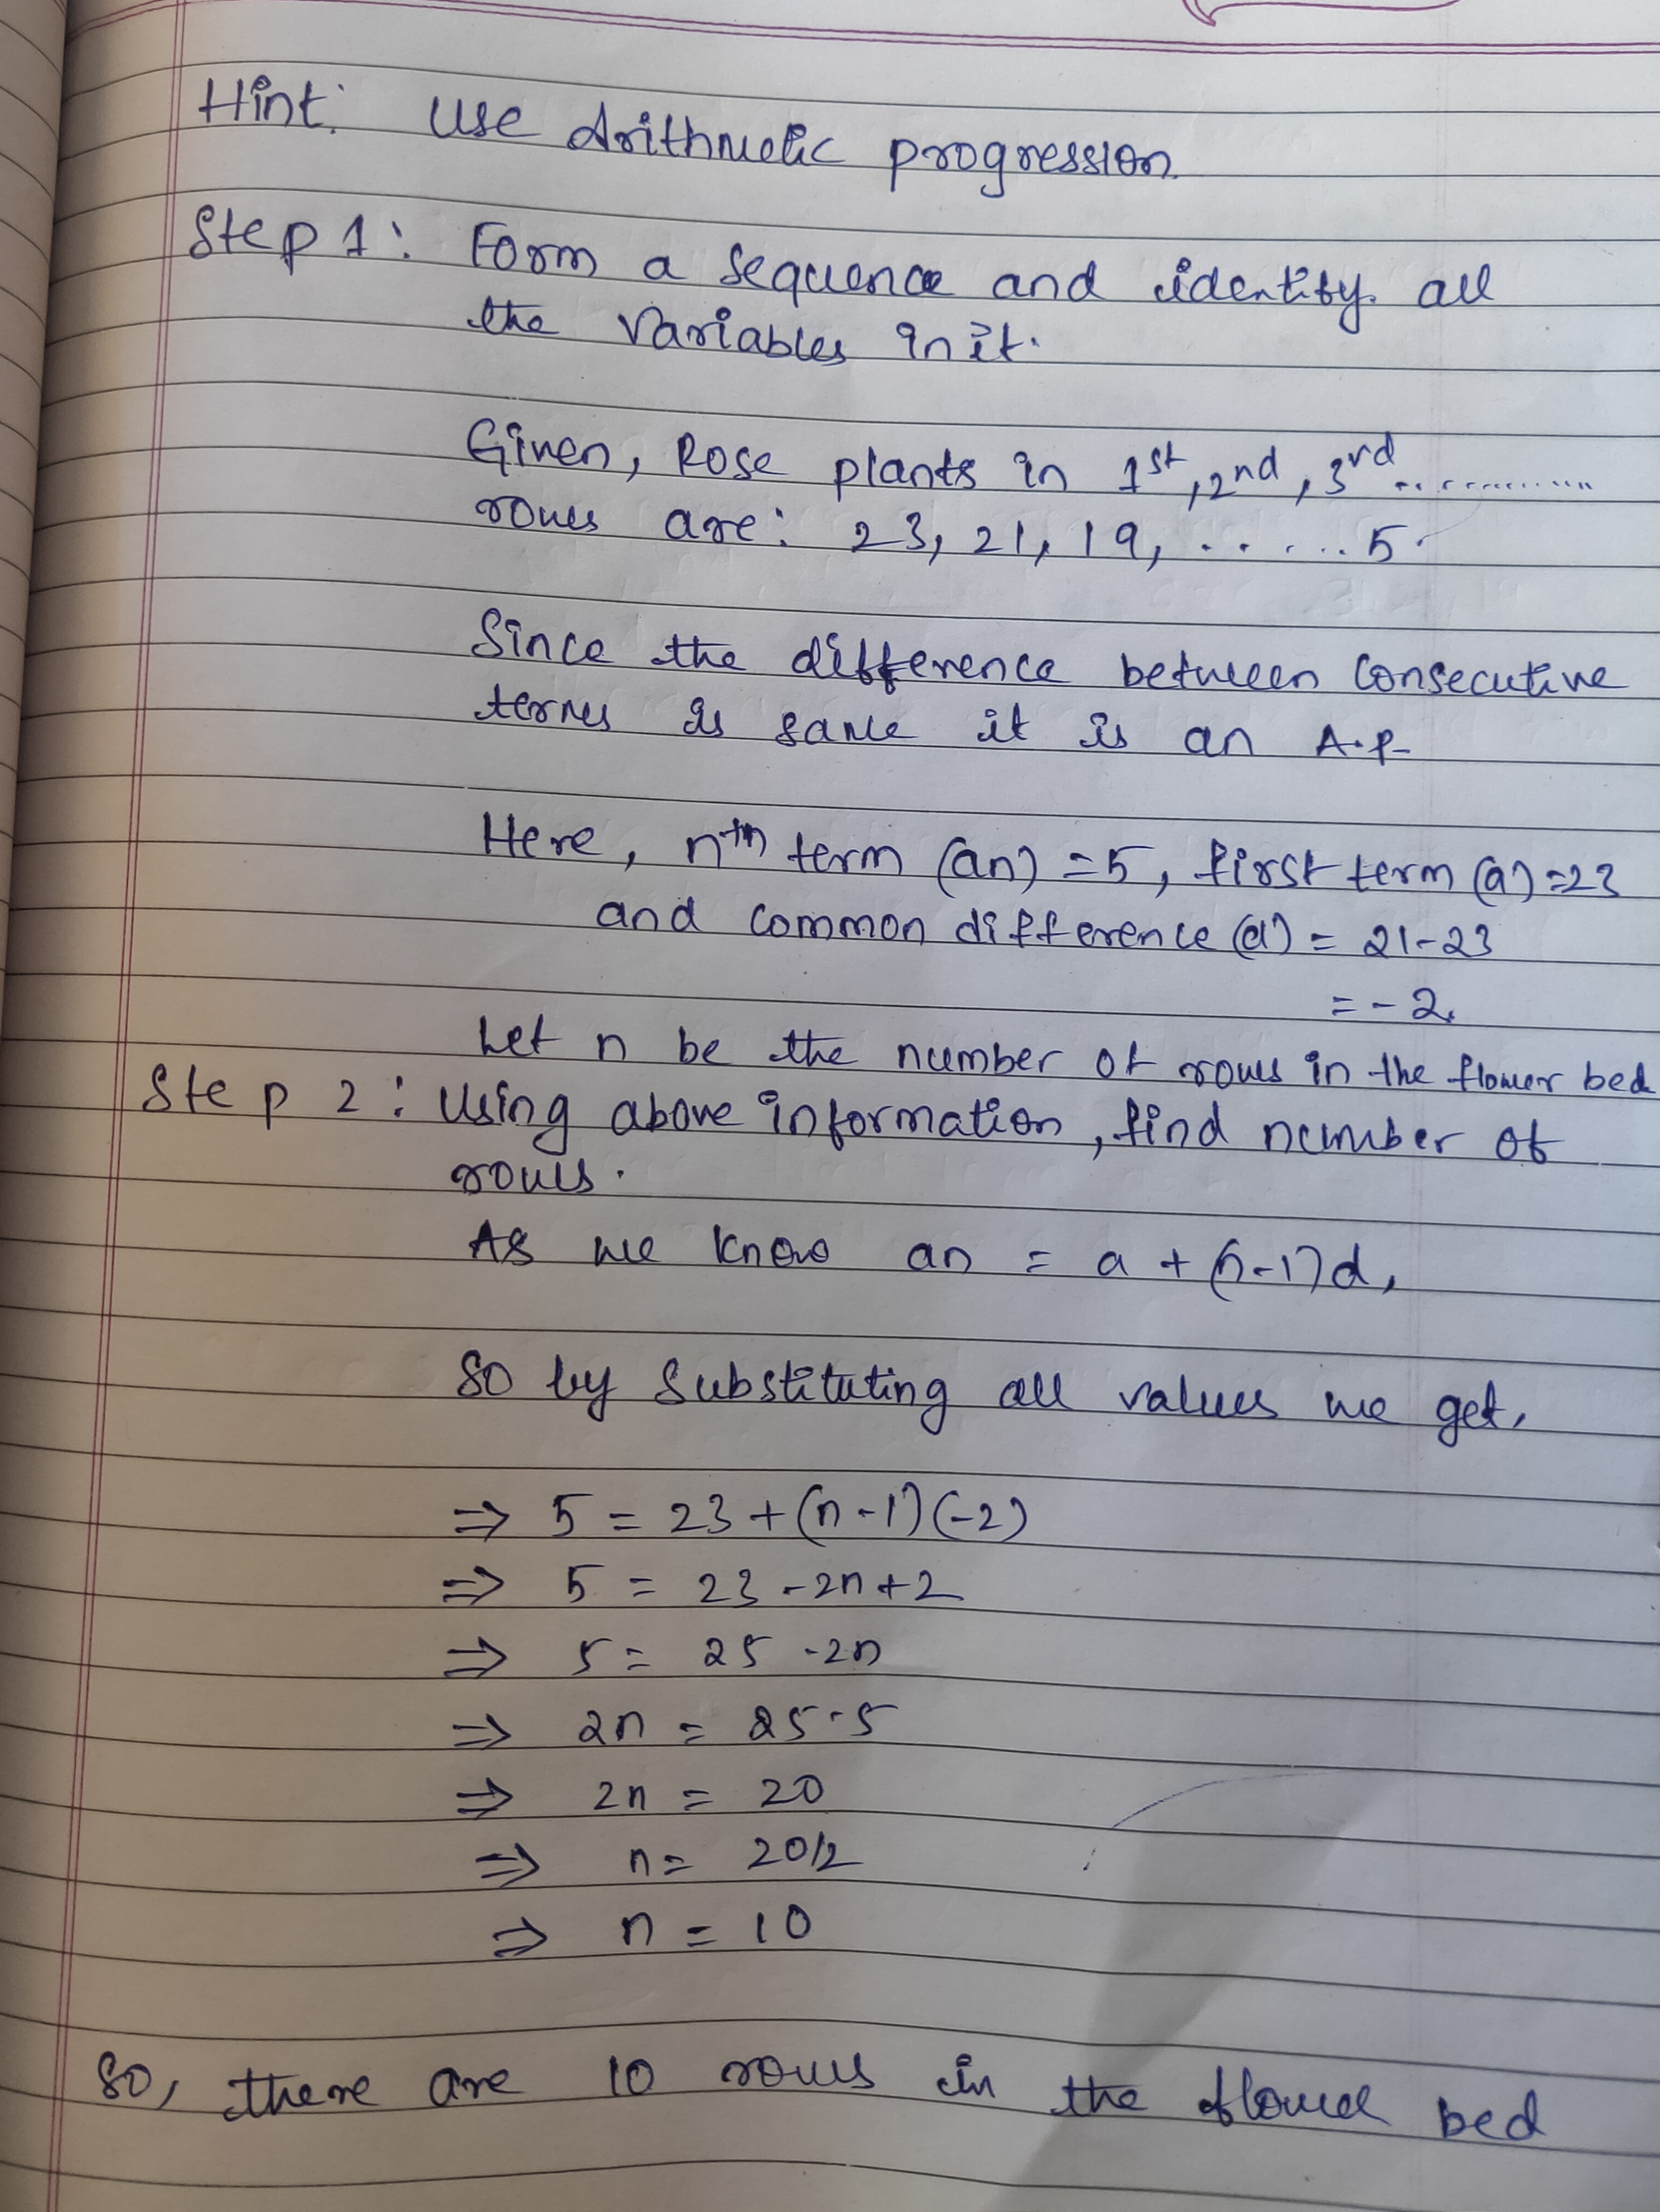 Hint: Use Arithmetic progression.
Step 1: Form a sequence and identify all
the variables in it.
Given, Rose plants in 1st, 2nd, 3rd ............
rows are: 23, 21, 19, ...... 5.
Since the difference between consecutive
terms is same it is an A.P
Here, nth term (an) = 5, first term (a) = 23
and common difference (d) = 21-23
= -2.
Let n be the number of rows in the flower bed
Step 2: Using above information, find number of
rows.
As we know an = a + (n-1)d,
So by substituting all values we get,
⇒ 5 = 23 + (n-1)(-2)
⇒ 5 = 23 - 2n + 2
⇒ 5 = 25 - 2n
⇒ 2n = 25-5
⇒ 2n = 20
⇒ n = 20/2
⇒ n = 10
So, there are 10 rows in the flower bed